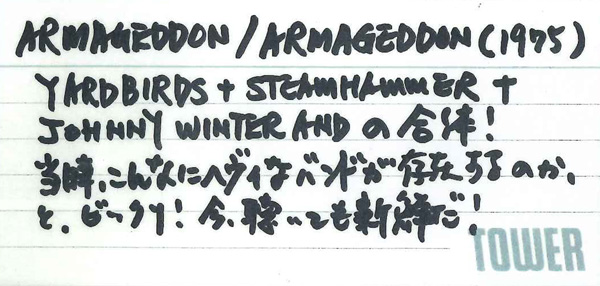 ARMAGEDDON / ARMAGEDDON (1975)
YARDBIRDS + STEAMHAMMER +
JOHNNY WINTER AND の合体!
当時、こんなにヘヴィなバンドが存在するのか、
と、ビックリ! 今、聴いても新鮮だ!
TOWER